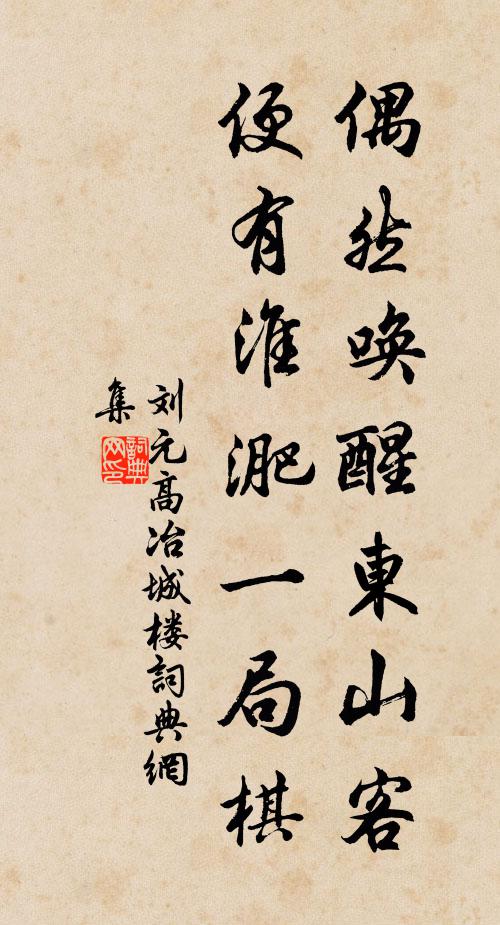 偶然唤醒東山客
便有淮淝一局棋
刘元高冶城楼詞典網
集
詞典
网印